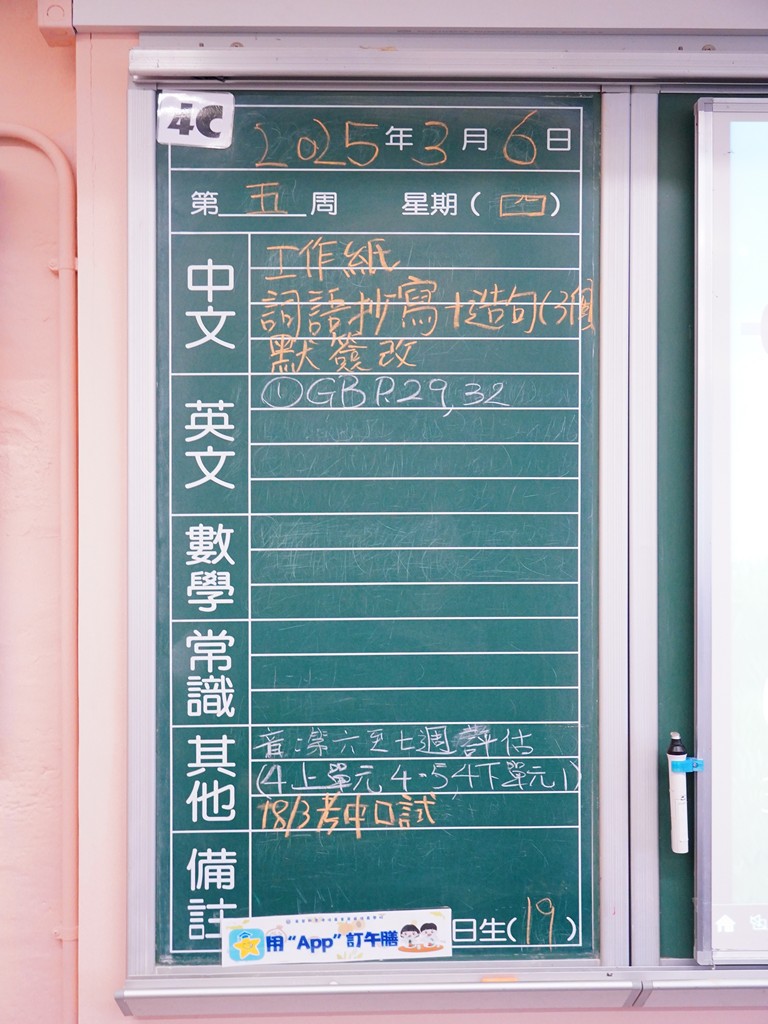 4C
2025年3月6日
第五周 星期(四)
中文
工作紙
詞語抄寫+造句(3個
默簽改
英文
①GB P.29,32
數學
常識
其他
音樂六至七週評估
(4上單元4-5,4下單元1)
18/3考中口試
備註
用“App”訂午膳
日生(19)